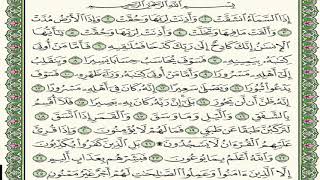 بِسْمِ ٱللَّهِ ٱلرَّحْمَٰنِ ٱلرَّحِيمِ
إِذَا ٱلسَّمَآءُ ٱنشَقَّتْ ١ وَأَذِنَتْ لِرَبِّهَا وَحُقَّتْ ٢ وَإِذَا ٱلْأَرْضُ مُدَّتْ
٣ وَأَلْقَتْ مَا فِيهَا وَتَخَلَّتْ ٤ وَأَذِنَتْ لِرَبِّهَا وَحُقَّتْ ٥ يَٰٓأَيُّهَا
ٱلْإِنسَٰنُ إِنَّكَ كَادِحٌ إِلَىٰ رَبِّكَ كَدْحًا فَمُلَٰقِيهِ ٦ فَأَمَّا مَنْ أُوتِىَ
كِتَٰبَهُۥ بِيَمِينِهِۦ ٧ فَسَوْفَ يُحَاسَبُ حِسَابًا يَسِيرًا ٨ وَيَنقَلِبُ
إِلَىٰٓ أَهْلِهِۦ مَسْرُورًا ٩ وَأَمَّا مَنْ أُوتِىَ كِتَٰبَهُۥ وَرَآءَ ظَهْرِهِۦ ١٠ فَسَوْفَ
يَدْعُوا۟ ثُبُورًا ١١ وَيَصْلَىٰ سَعِيرًا ١٢ إِنَّهُۥ كَانَ فِىٓ أَهْلِهِۦ مَسْرُورًا ١٣
إِنَّهُۥ ظَنَّ أَن لَّن يَحُورَ ١٤ بَلَىٰٓ إِنَّ رَبَّهُۥ كَانَ بِهِۦ بَصِيرًا ١٥ فَلَآ أُقْسِمُ
بِٱلشَّفَقِ ١٦ وَٱلَّيْلِ وَمَا وَسَقَ ١٧ وَٱلْقَمَرِ إِذَا ٱتَّسَقَ ١٨
لَتَرْكَبُنَّ طَبَقًا عَن طَبَقٍ ١٩ فَمَا لَهُمْ لَا يُؤْمِنُونَ ٢٠ وَإِذَا قُرِئَ
عَلَيْهِمُ ٱلْقُرْءَانُ لَا يَسْجُدُونَ ٢١ بَلِ ٱلَّذِينَ كَفَرُوا۟ يُكَذِّبُونَ
٢٢ وَٱللَّهُ أَعْلَمُ بِمَا يُوعُونَ ٢٣ فَبَشِّرْهُم بِعَذَابٍ أَلِيمٍ ٢٤
إِلَّا ٱلَّذِينَ ءَامَنُوا۟ وَعَمِلُوا۟ ٱلصَّٰلِحَٰتِ لَهُمْ أَجْرٌ غَيْرُ مَمْنُونٍۭ ٢٥